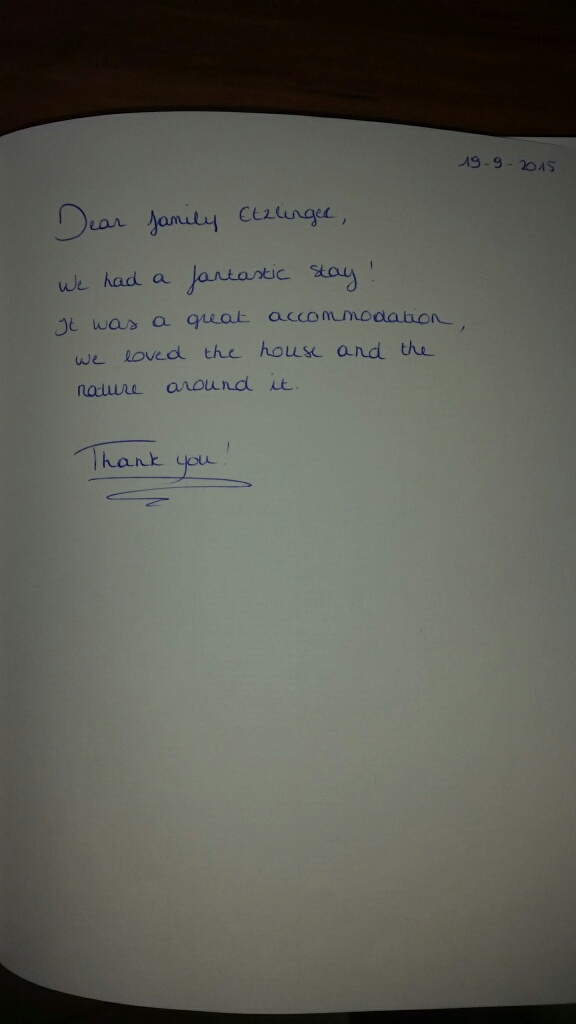 19-9-2015
Dear family Etzlinger,
We had a fantastic stay!
It was a great accommodation,
we loved the house and the
nature around it.
Thank you!